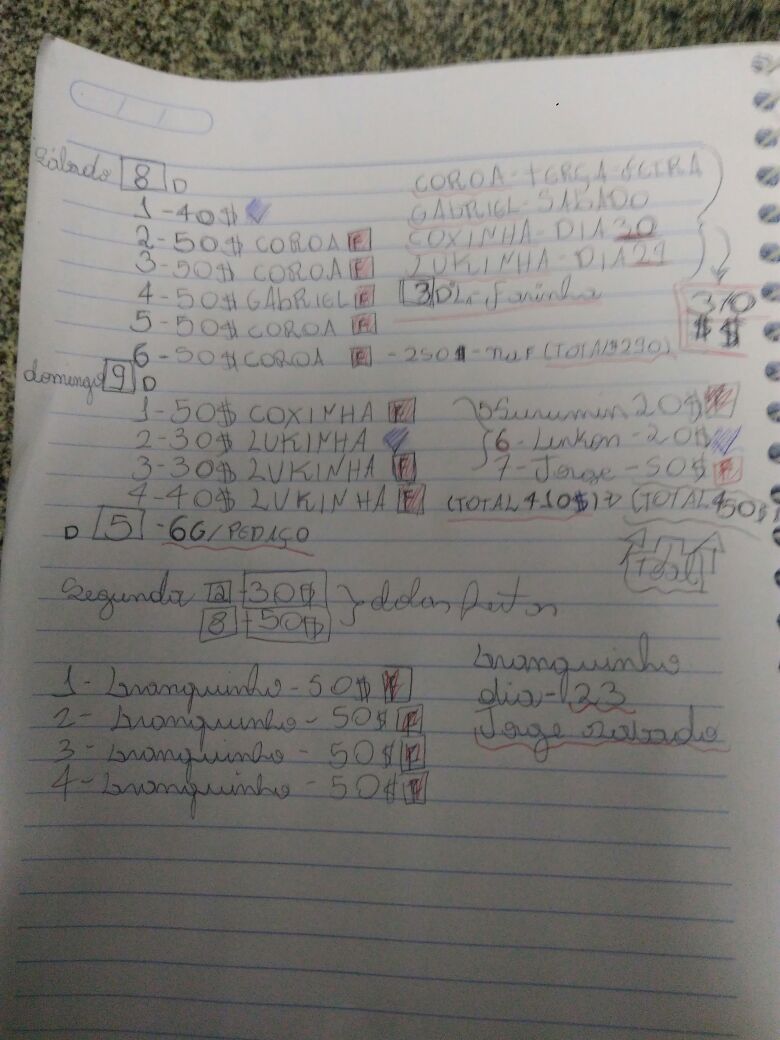 Sábado 8 D
1-40$
2-50$ COROA F
3-50$ COROA F
4-50$ GABRIEL F
5-50$ COROA F
6-50$ COROA F -250$ - na F (TOTAL$290)
COROA-TERÇA-FEIRA
GABRIEL-SABADO
COXINHA-DIA 30
LUKINHA-DIA 29
3 D
310
$ $
domingo 9 D
1-50$ COXINHA F
2-30$ LUKINHA
3-30$ LUKINHA F
4-40$ LUKINHA F
5 Surumin 20$ F
6-Lenkon-20$
7-Jorge-50$ F
(TOTAL 410$) (TOTAL 450$)
Total
D 5 -6G/PEDAÇO
Segunda 12-30$
8-50$
1-branquinho-50$ F
2-branquinho-50$ F
3-branquinho-50$ F
4-branquinho-50$ F
branquinho
dia-23
Jorge sabado